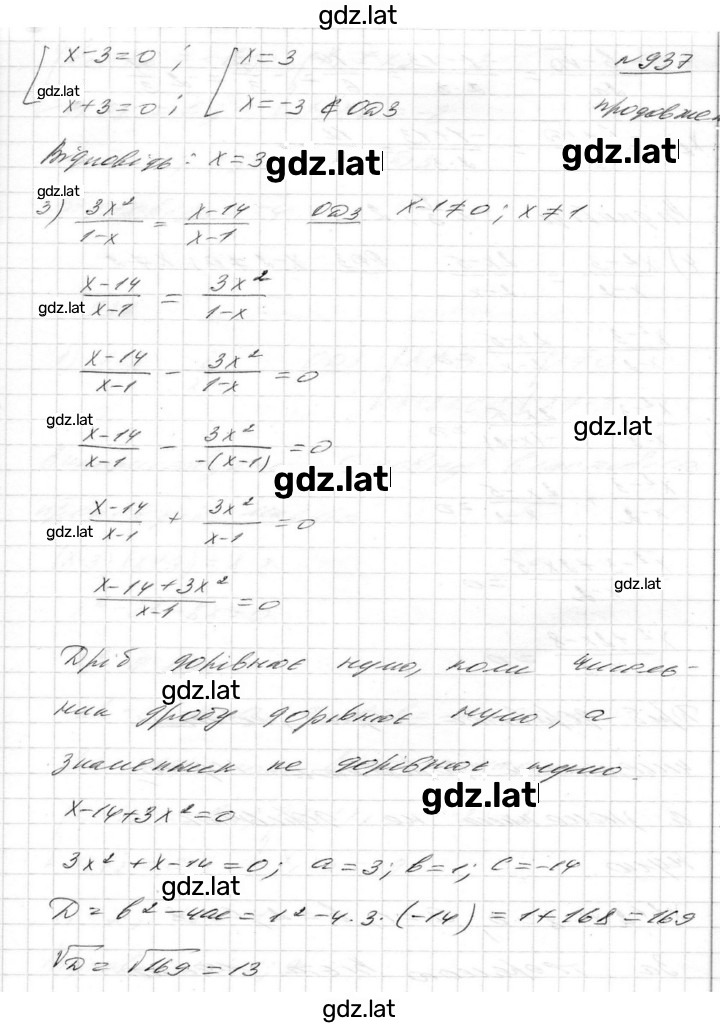 gdz.lat
x-3=0 ; x=3 №937
gdz.lat
x+3=0 ; x=-3 ∉ ОДЗ продовжен
Відповідь: x=3 gdz.lat gdz.lat
gdz.lat
3) 3x²/(1-x) = (x-14)/(x-1) ОДЗ x-1≠0 ; x≠1
(x-14)/(x-1) = 3x²/(1-x)
gdz.lat
(x-14)/(x-1) - 3x²/(1-x) = 0
gdz.lat gdz.lat
(x-14)/(x-1) - 3x²/(-(x-1)) = 0
gdz.lat
(x-14)/(x-1) + 3x²/(x-1) = 0
gdz.lat
(x-14+3x²)/(x-1) = 0
gdz.lat
Дріб дорівнює нулю, коли чисель-
gdz.lat
ник дробу дорівнює нулю, а
знаменник не дорівнює нулю.
gdz.lat
x-14+3x²=0
3x²+x-14=0; a=3; b=1; c=-14
gdz.lat
D=b²-4ac=1²-4·3·(-14)=1+168=169
√D=√169=13
gdz.lat